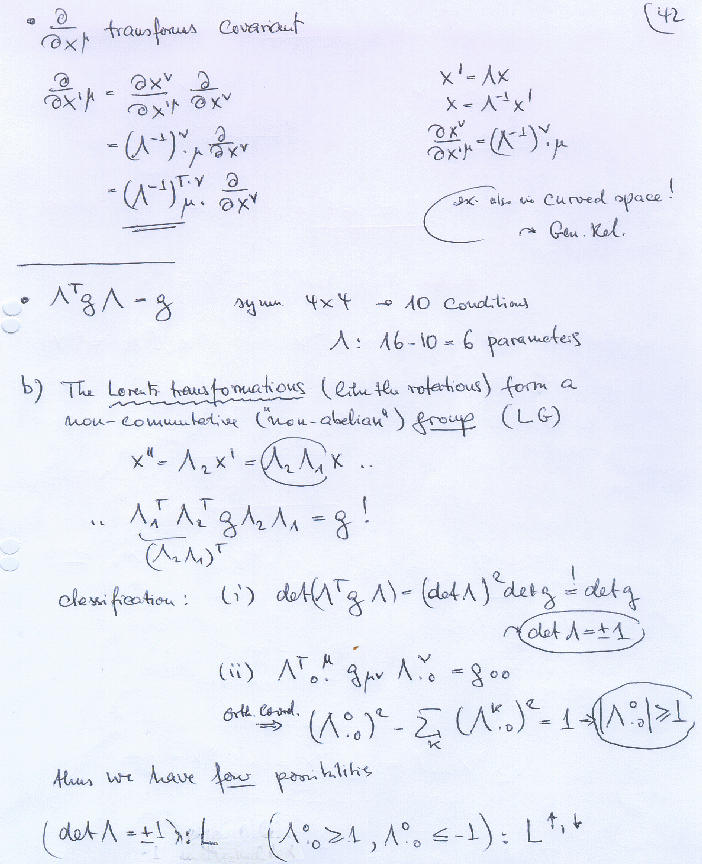 (42
• ∂/∂x^μ transforms covariant
∂/∂x'^μ = ∂x^ν/∂x'^μ ∂/∂x^ν
= (Λ^-1)^ν_·μ ∂/∂x^ν
= (Λ^-1)^T_μ·^·ν ∂/∂x^ν
x' = Λx
x = Λ^-1 x'
∂x^ν/∂x'^μ = (Λ^-1)^ν_·μ
ex. also in curved space!
⤳ Gen. Rel.
• Λ^T g Λ = g symm 4x4 → 10 conditions
Λ: 16-10 = 6 parameters
b) The Lorentz transformations (like the rotations) form a
non-commutative ("non-abelian") group (LG)
x'' = Λ_2 x' = Λ_2 Λ_1 x ..
.. Λ_1^T Λ_2^T g Λ_2 Λ_1 = g !
(Λ_2 Λ_1)^T
classification: (i) det(Λ^T g Λ) = (det Λ)^2 det g =! det g
⤳ det Λ = ±1
(ii) Λ^T_0·^·μ g_μν Λ^ν_·0 = g_00
orth. coord. ⇒ (Λ^0_·0)^2 - Σ_k (Λ^k_·0)^2 = 1 → |Λ^0_·0| ≥ 1
thus we have four possibilities
(det Λ = ±1): L_± (Λ^0_·0 ≥ 1, Λ^0_·0 ≤ -1): L^↑,↓